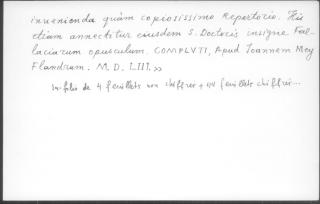 invenienda quàm copiosissimo Repertorio. Huic
etiam annectitur eiusdem S. Doctoris insigne Fal-
laciarum opusculum. COMPLVTI, Apud Joannem Mey
Flandrum. M. D. LIII. »
In-folio de 4 feuillets non chiffrés + 44 feuillets chiffrés...